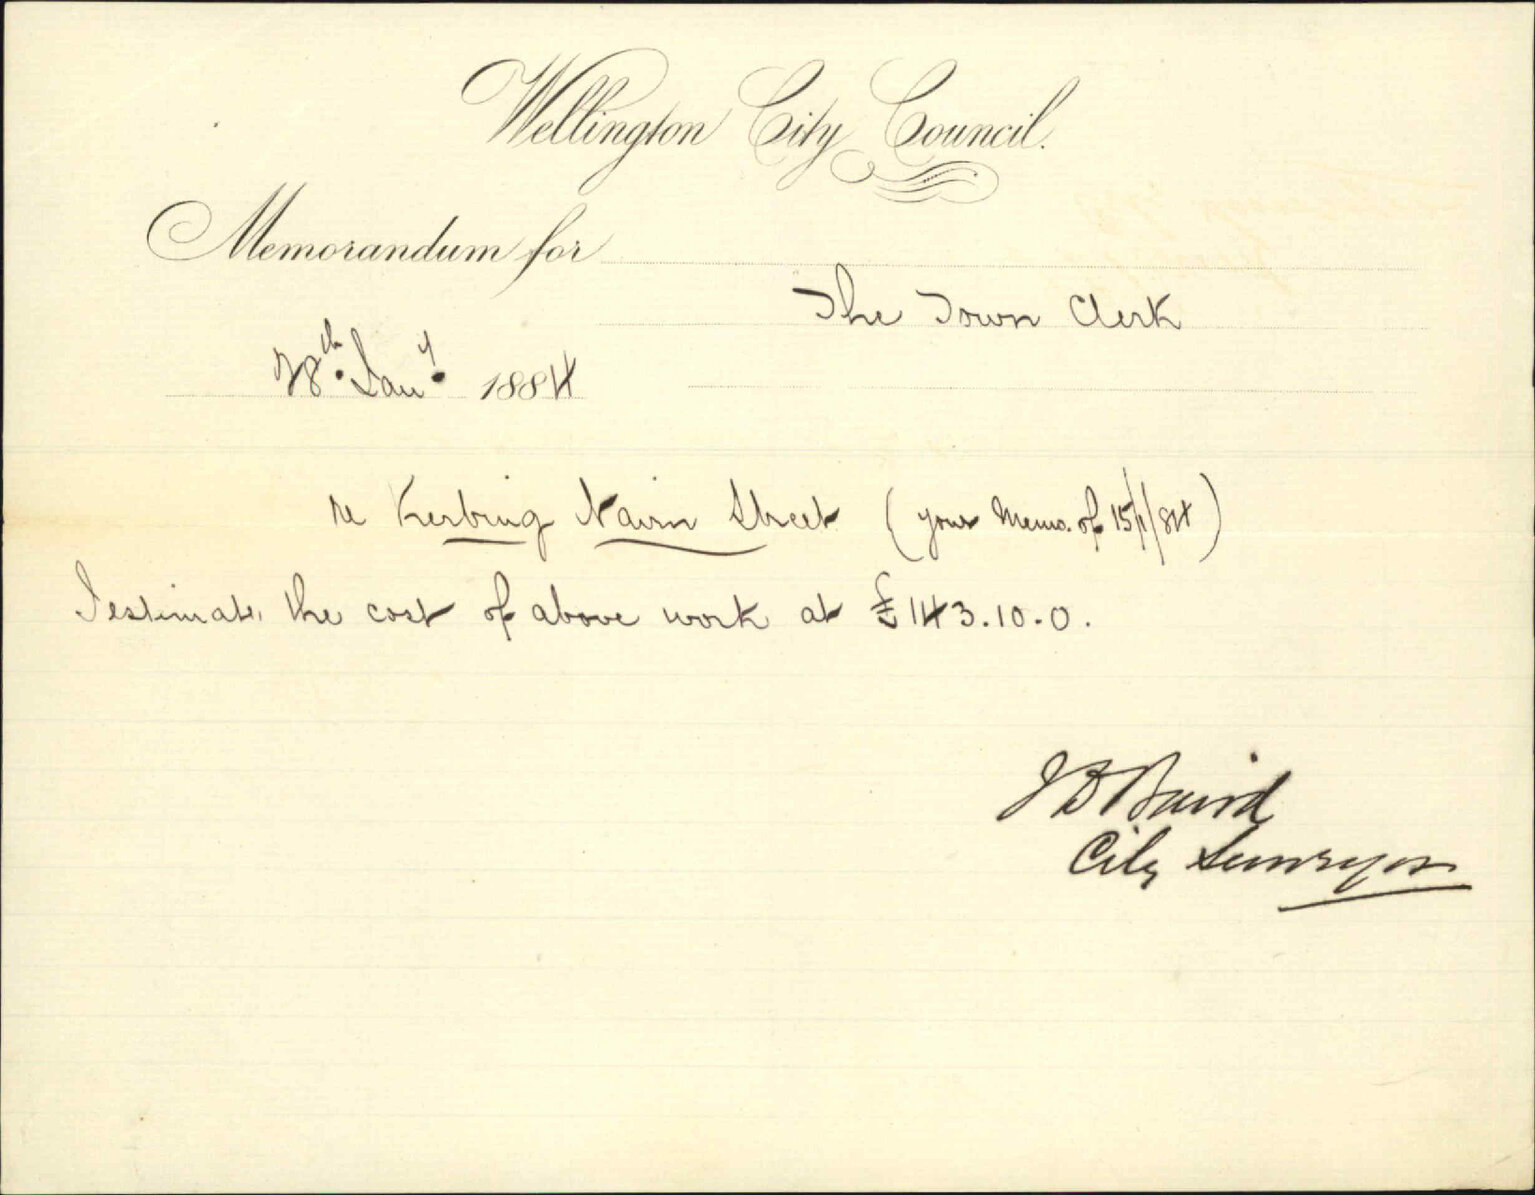 Wellington City Council.
Memorandum for
The Town Clerk
28th. Jany. 1884
re Kerbing Nairn Street (your Memo. of 15/1/84)
I estimate the cost of above work at £143.10.0.
J D Baird
City Surveyor